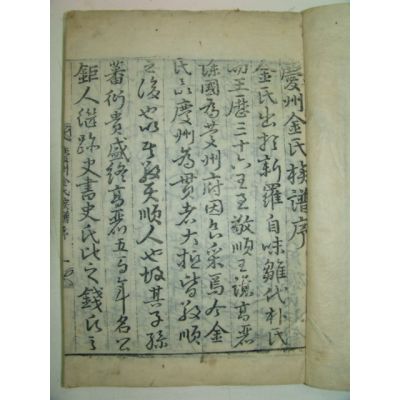 慶州金氏族譜序
金氏出於新羅自味雛代朴氏
而王歷三十六王至敬順王說高麗
除國爲慶州府因食采焉今金
氏以慶州爲貫者大抵皆敬順
之後也以其敎天順人也故其子孫
蕃衍貴盛終高麗五百年名公
鉅人繼跡史書史氏比之錢氏之